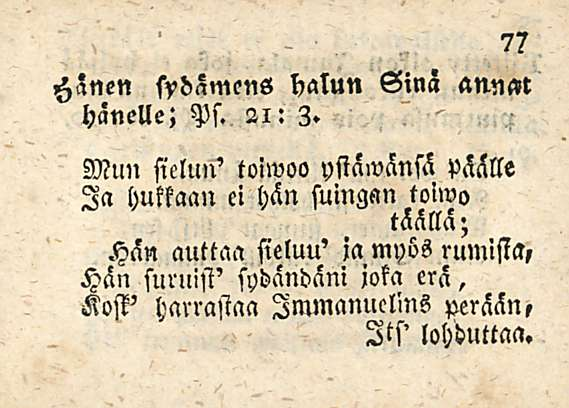 77
Hänen sydämens halun Sinä annat
hänelle; Ps. 21: 3.
Mun sielun' toiwoo ystäwänsä päälle
Ja hukkaan ei hän suingan toiwo
täällä;
Hän auttaa sieluu' ja myös rumista,
Hän suruist' sydändäni joka erä,
Kosk' harrastaa Immanuelins perään,
Its' lohduttaa.